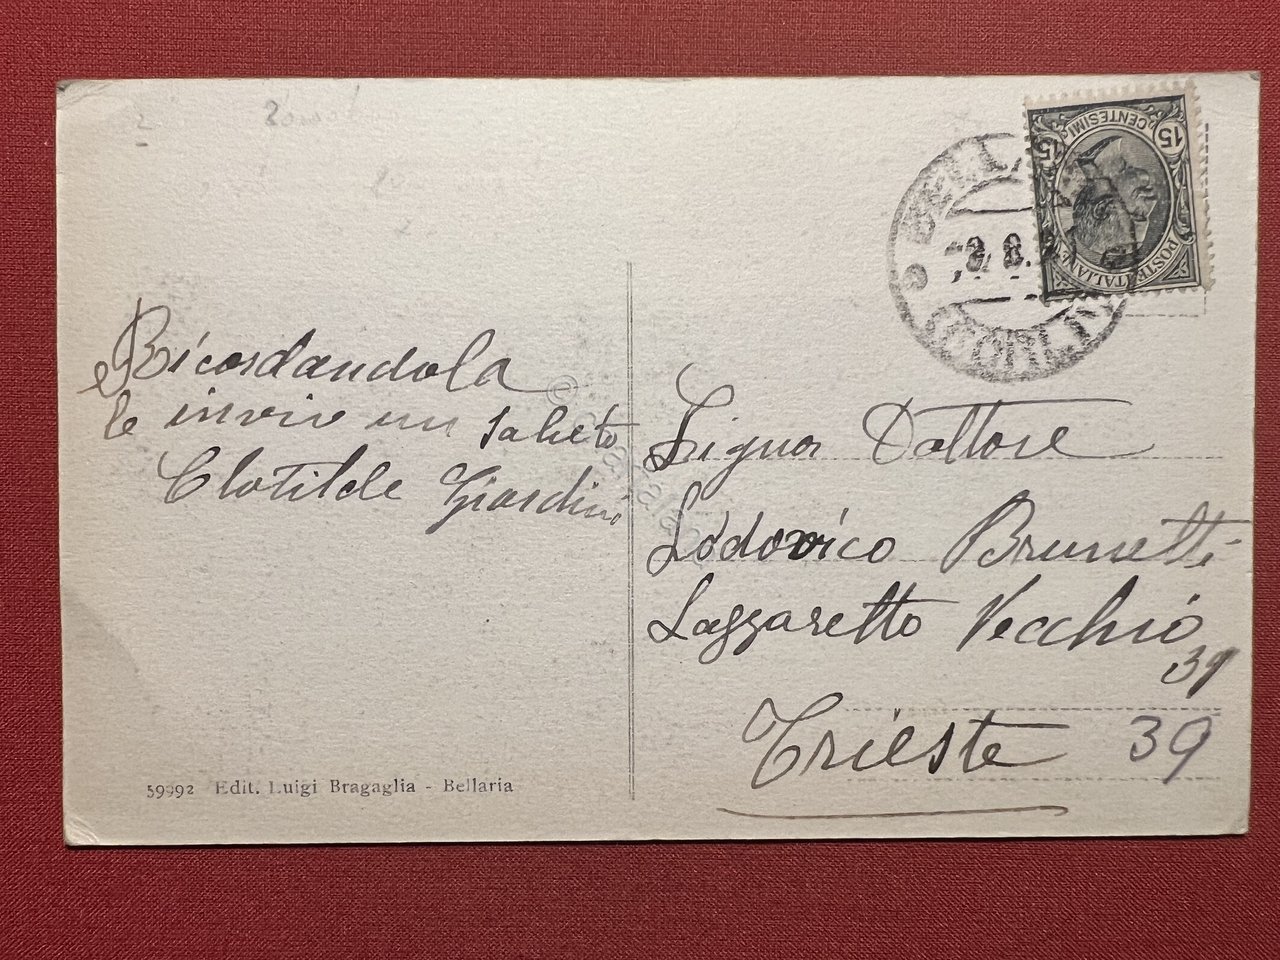 Ricordandola
le invio un saluto
Clotilde Giardini
59992 Edit. Luigi Bragaglia - Bellaria
15 CENTESIMI 15
POSTE ITALIANE
8. 8.
(FORLI)
Signor Dottore
Lodovico Brunetti
Lazzaretto Vecchio
39
Trieste 39